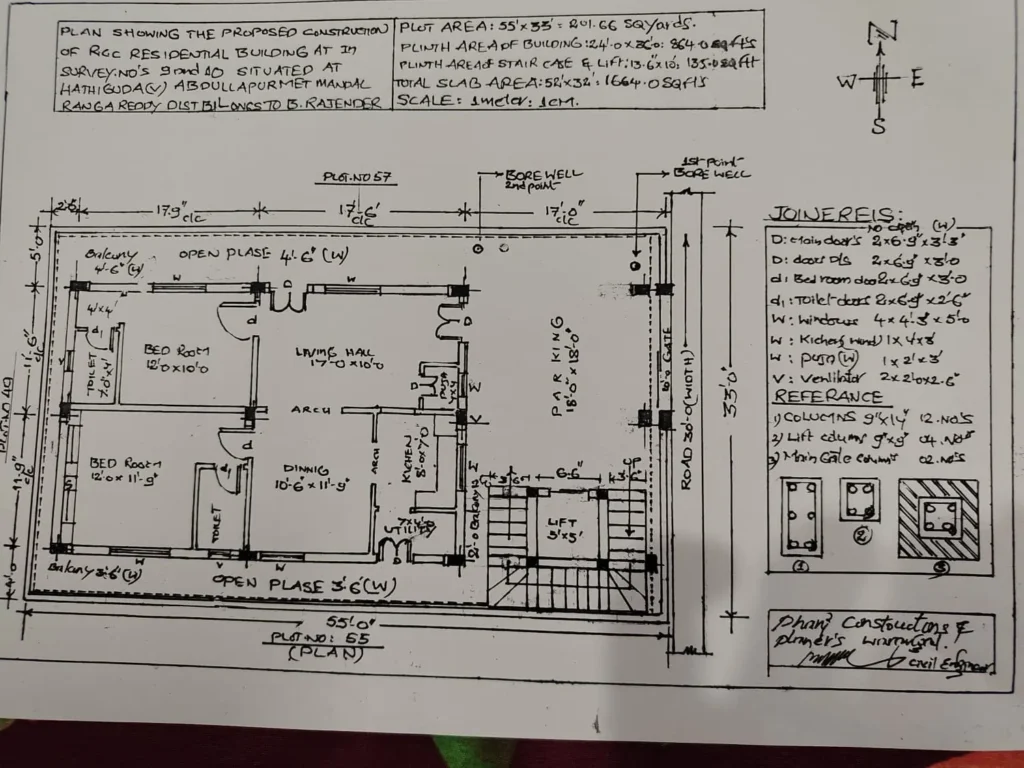 PLAN SHOWING THE PROPOSED CONSTRUCTION
OF RCC RESIDENTIAL BUILDING AT IN
SURVEY.NO'S 9 and 10 SITUATED AT
HATHIGUDA(V) ABDULLAPURMET MANDAL
RANGA REDDY DIST BILONGS TO B. RAJENDER
PLOT AREA: 55'x33' = 201.66 SQYards.
PLINTH AREA OF BUILDING: 24'.0 x 36'0: 864.0 SQFTS
PLINTH AREA OF STAIR CASE & LIFT: 13.6"x10', 135.0 SQ Ft
TOTAL SLAB AREA: 52'x32' = 1664.0 SQFTS
SCALE: 1 meter: 1cm.
N
W E
S
PLOT.NO 57
BORE WELL
2nd point
1st point
BORE WELL
2'.6"
17'.9" c/c
17'-6" c/c
17'-0" c/c
5'.0"
Balcany
4'-6" (W)
OPEN PLASE 4'.6" (W)
W
W
D
4'x4'
d1
d
D
TOILET
7'.0"x4'
BED ROOM
12'.0x10'.0
LIVING HALL
17'-0"x10'0
D
PUJA
PARKING
18'.0"x18'.0"
10'.0 GATE
ROAD 30'.0 (WIDTH)
33'.0"
PLOT.NO 49
11'-6" c/c
11'.9" c/c
4'.0"
ARCH
ARCH
d
BED ROOM
12'.0x11'-9"
d1
TOILET
DINNIG
10'-6"x11'-9"
KICHEN
8'.0x7'0
UTILITY
D
6'-6"
LIFT
5'x5'
UP
Balcany 3'.6"(W)
W
V
W
OPEN PLASE 3'.6"(W)
55'.0"
PLOT.NO: 55
(PLAN)
JOINEREIS:
NO depth (W)
D: Main doors 2x6.9"x3'.3"
D: doors D/s 2x6.9"x3'.0
d: Bed room door 2x6.9"x3'.0
d1: Toilet doors 2x6.9"x2'.6"
W: Windows 4x4'.3"x5'.0
W: Kichen wind) 1x4x3'
W: puja (W) 1x2'x3'
V: Ventilator 2x2'.0x2.6"
REFERANCE
1) COLUMNS 9"x14" 12.NO'S
2) Lift colums 9"x9" 04.NO'S
3) Main Gate Colums 02.NO'S
1
2
3
Constructions &
planner's
Civil Engineer